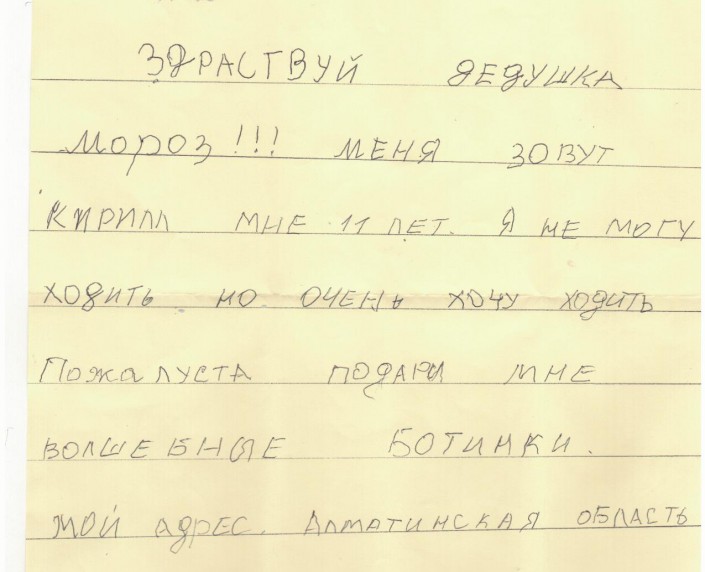 ЗДРАСТВУЙ ДЕДУШКА
МОРОЗ!!! МЕНЯ ЗОВУТ
КИРИЛЛ МНЕ 11 ЛЕТ. Я НЕ МОГУ
ХОДИТЬ НО ОЧЕНЬ ХОЧУ ХОДИТЬ
ПожаЛУСТА ПОДАРИ МНЕ
ВОЛШЕБНЫЕ БОТИНКИ.
МОЙ АДРЕС. АЛМАТИНСКАЯ ОБЛАСТЬ